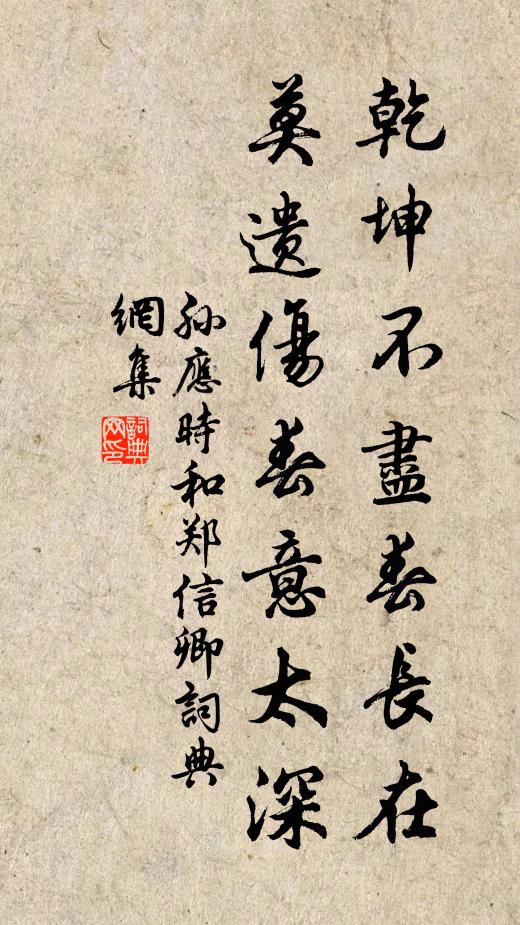 乾坤不盡春長在
莫遺傷春意太深
孫應時和郑信卿詞典
網集
詞典网印